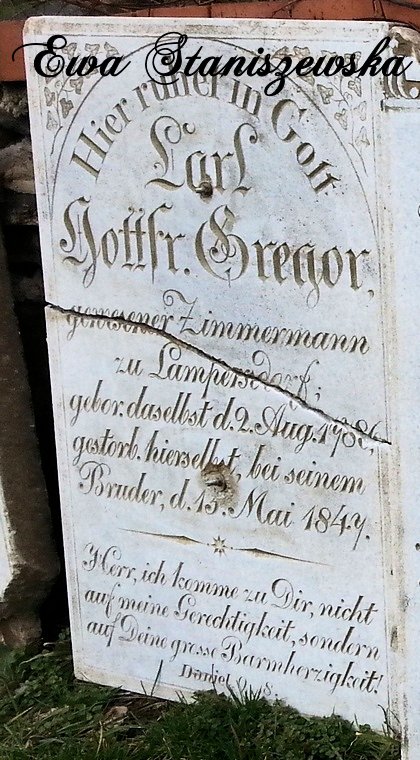 Ewa Staniszewska
Hier ruhet in Gott
Carl
Gottfr. Gregor,
gewesener Zimmermann
zu Lampersdorf;
gebor. daselbst d. 2. Aug. 1786,
gestorb. hierselbst, bei seinem
Bruder, d. 15. Mai 1847.
Herr, ich komme zu Dir, nicht
auf meine Gerechtigkeit, sondern
auf Deine grosse Barmherzigkeit!
Daniel 9. 18.